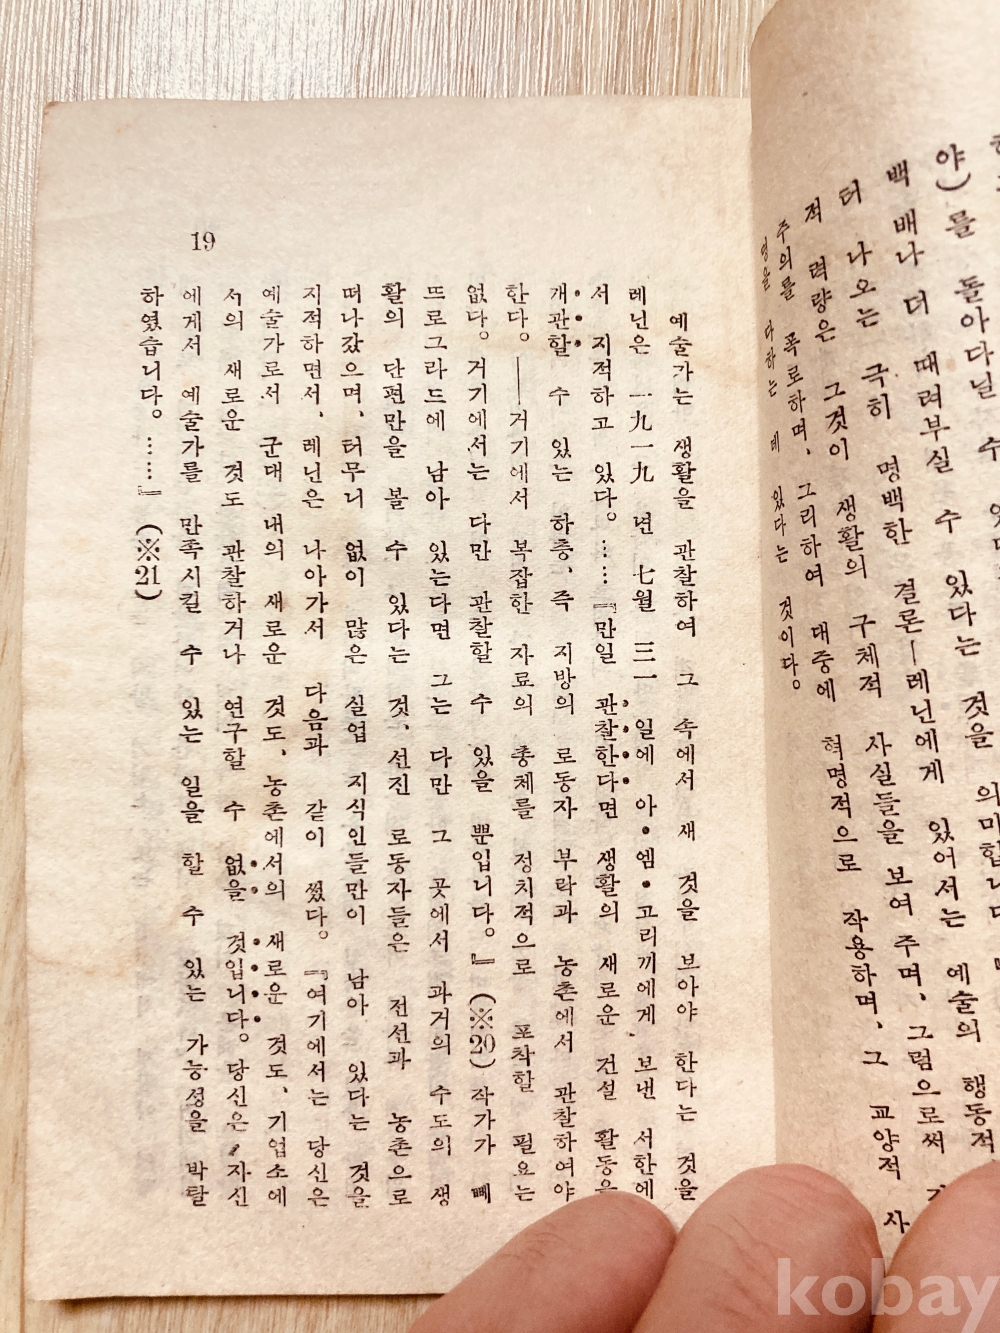 야)를 돌아다닐 수
백배나 더 때려부실 수 있다는 것을 의미합니다
터 나오는 극히 명백한 결론—레닌에게 있어서는 예술의 행동적
적 력량은 그것이 생활의 구체적 사실들을 보여 주며, 그럼으로써
주의를 폭로하며, 그리하여 대중에 혁명적으로 작용하며, 그 교양적 사
명을 다하는 데 있다는 것이다.
예술가는 생활을 관찰하여 그 속에서 새 것을 보아야 한다는 것을
레닌은 一九一九 년 七월 三一 일에 아·엠·고리끼에게 보낸 서한에
서 지적하고 있다. ……『만일 관찰한다면 생활의 새로운 건설 활동을
개관할 수 있는 하층, 즉 지방의 로동자 부락과 농촌에서 관찰하여야
한다. ──거기에서 복잡한 자료의 총체를 정치적으로 포착할 필요는
없다. 거기에서는 다만 관찰할 수 있을 뿐입니다。』(※20) 작가가 뻬
뜨로그라드에 남아 있는다면 그는 다만 그 곳에서 과거의 수도의 생
활의 단편만을 볼 수 있다는 것, 선진 로동자들은 전선과 농촌으로
떠나갔으며, 터무니 없이 많은 실업 지식인들만이 남아 있다는 것을
지적하면서, 레닌은 나아가서 다음과 같이 썼다. 『여기에서는 당신은
예술가로서 군대 내의 새로운 것도, 농촌에서의 새로운 것도, 기업소에
서의 새로운 것도 관찰하거나 연구할 수 없을 것입니다. 당신은 자신
에게서 예술가를 만족시킬 수 있는 일을 할 수 있는 가능성을 박탈
하였습니다. ……』(※21)
19
kobay